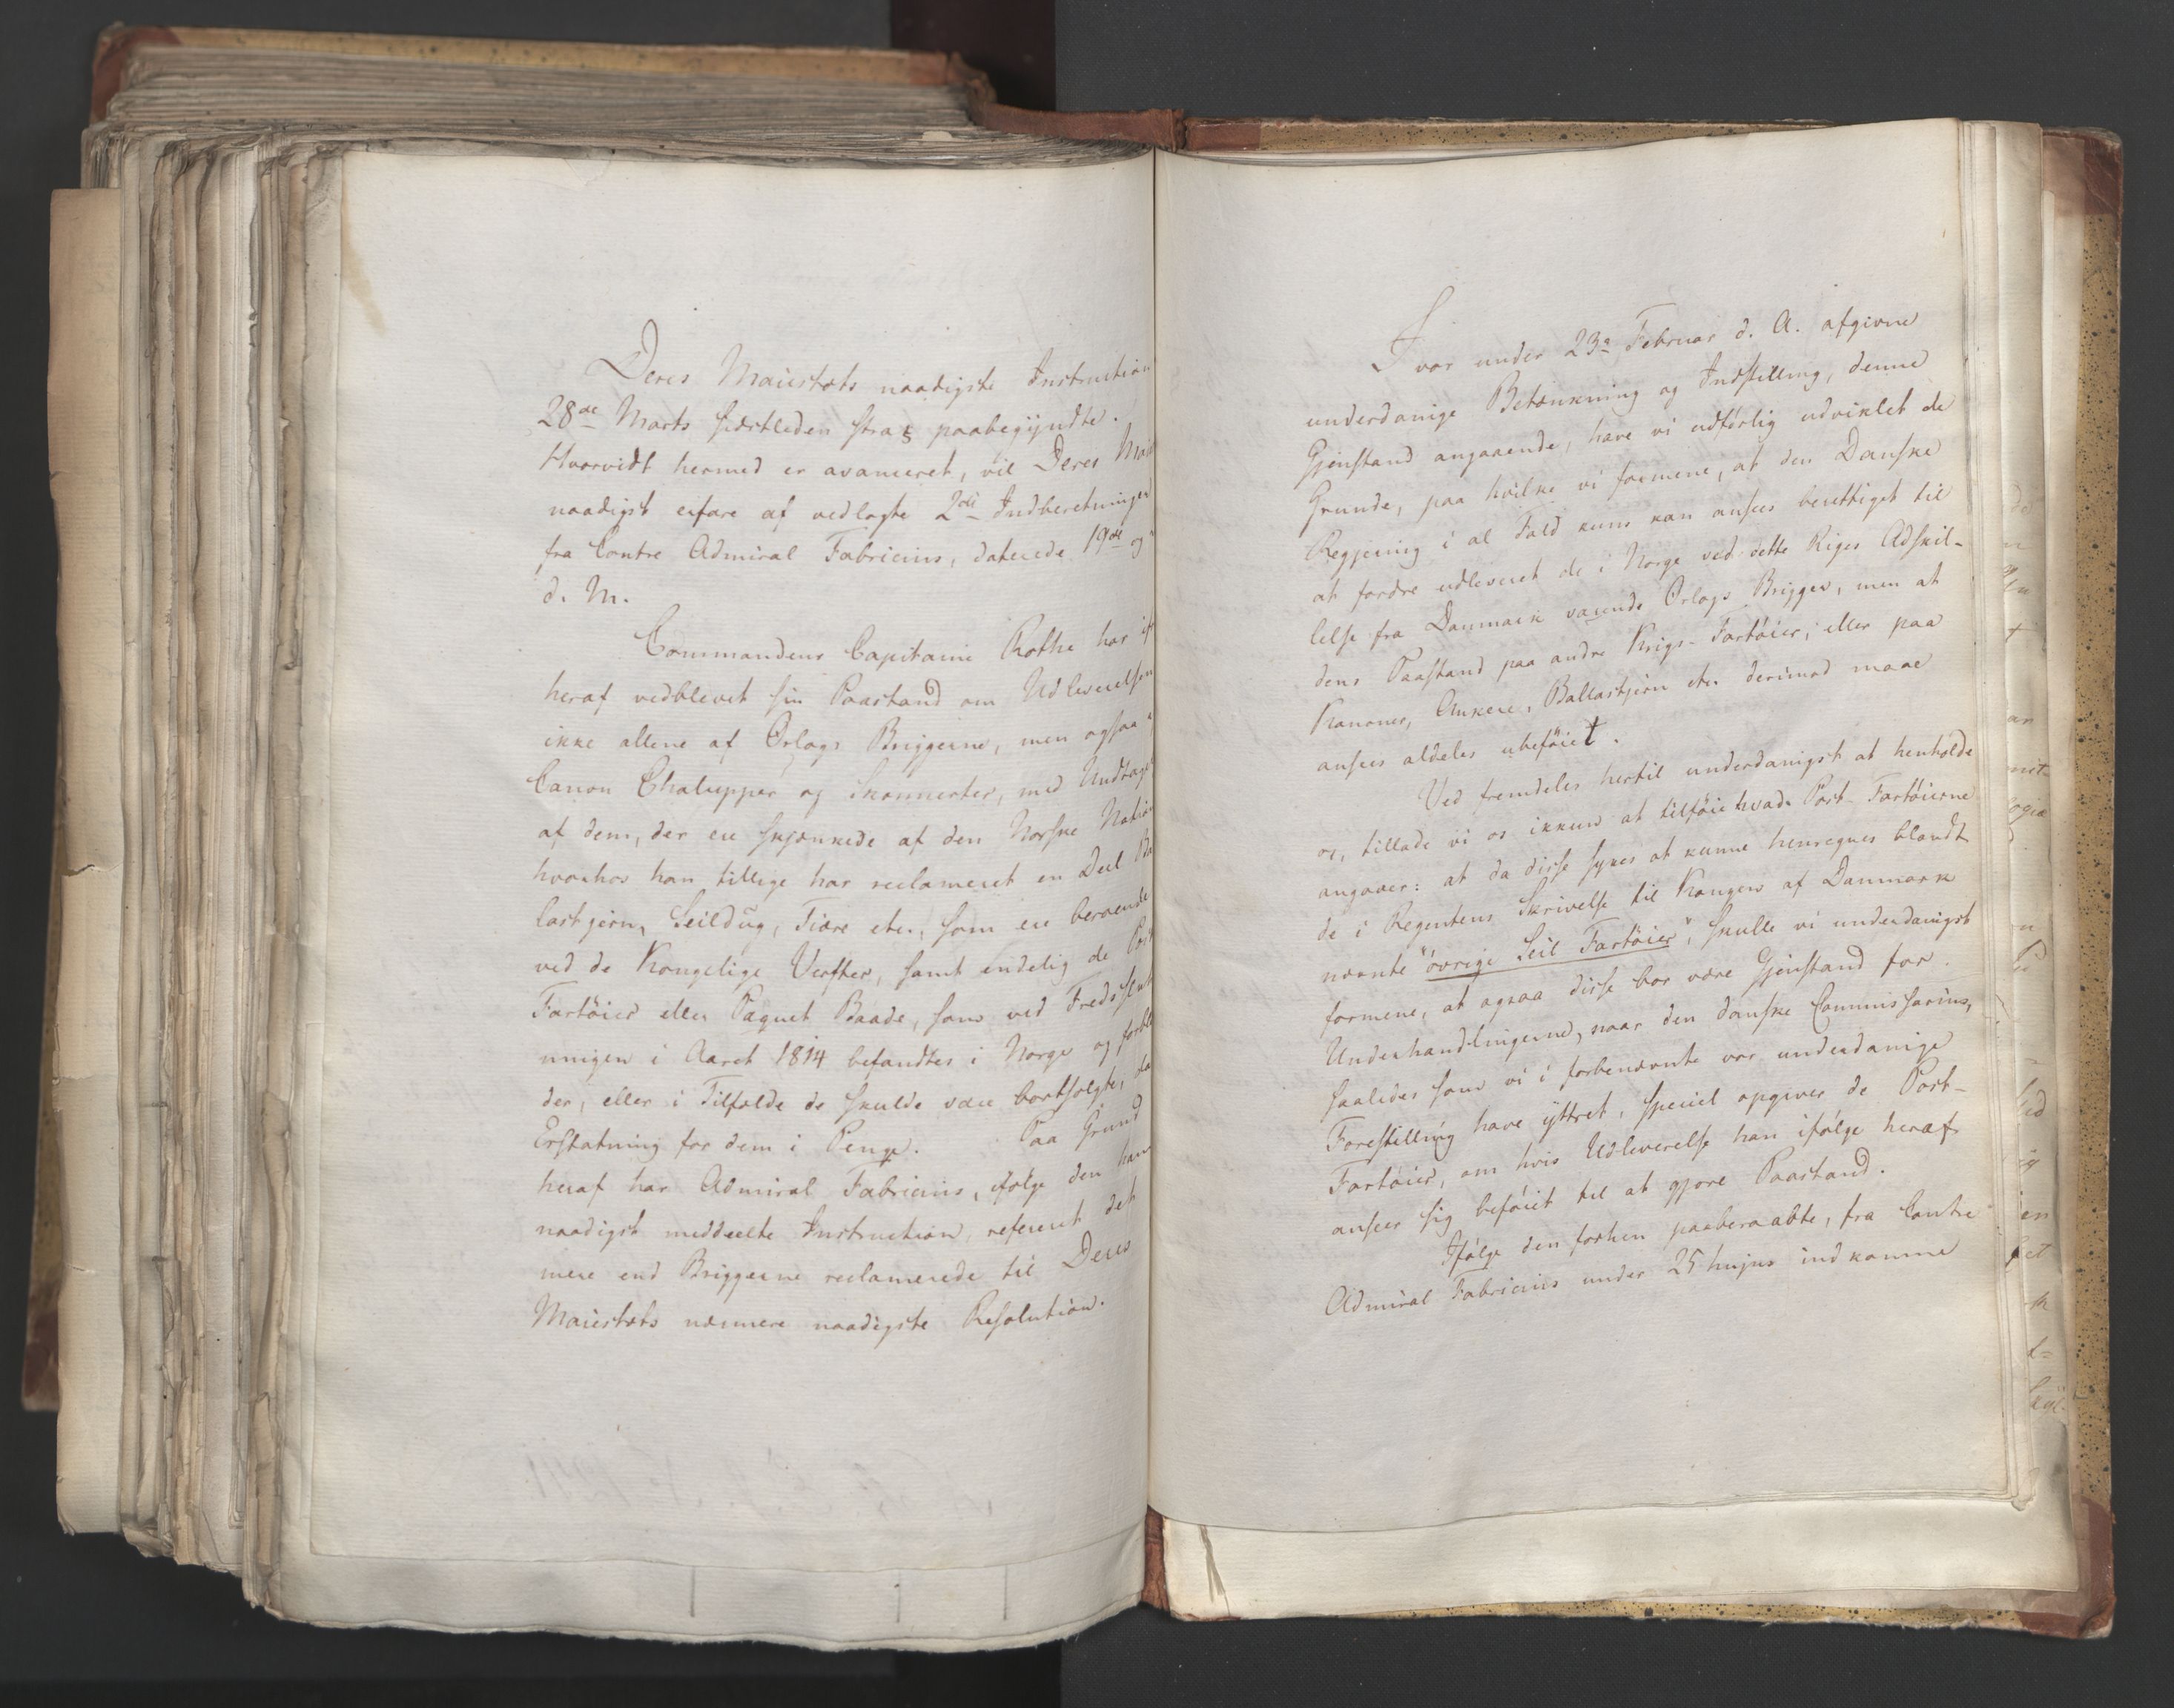 Deres Maiestæts naadigste Instruction
28de Marts sidstleden strax paabegyndte.
Hvorvidt hermed er avanceret, vil Deres
naadigst erfare af vedlagte 2de Indberetninger
fra Contre Admiral Fabricius, daterede 19de og
d. M.
Commandeur Capitaine Rothe har
heraf vedblevet sin Paastand om Udleverelsen
ikke allene af Orlogs Briggerne, men ogsaa
Canon Chalupper og Skonnerter, med
af dem, der ere skjænkede af den Norske
hvorhos han tillige har reclameret en Deel
lastjern, Seildug, Tiære etc., som ere beroende
ved de Kongelige Verfter, samt endelig de
Fartöier eller Paquet Baade, som ved
ningen i Aaret 1814 befandtes i Norge og
der, eller i Tilfælde de skulde være bortsolgte,
Erstatning for dem i Penge. Paa Grund
heraf har Admiral Fabricius, ifölge den ham
naadigst meddeelte Instruction, refereret det
mere end Briggerne reclamerede til Deres
Maiestæts nærmere naadigste Resolution.
I vor under 23de Februar d. A. afgivne
underdanige Betænkning og Indstilling, denne
Gjenstand angaaende, have vi udförlig udviklet de
Grunde, paa hvilke vi formene, at den Danske
Regjering i al Fald kuns kan ansees berettiget til
at fordre udleveret de i Norge ved dette Riges Adskil-
lelse fra Danmark værende Orlogs Brigger, men at
dens Paastand paa andre Krigs-Fartöier, eller paa
Kanoner, Ankere, Ballastjern etc. derimod maae
ansees aldeles ubeföiet.
Ved fremdeles hertil underdanigst at henholde
os, tillade vi os ikkun at tilföie hvad Post-Fartöierne
angaaer: at da disse synes at kunne henregnes blandt
de i Regentens Skrivelse til Kongen af Danmark
nævnte "övrige Seil Fartöier", skulle vi underdanigst
formene, at ogsaa disse bör være Gjenstand for
Underhandlingerne, naar den danske Commissarius,
saaledes som vi i forbenævnte vor underdanige
Forestilling have yttret, speciel opgiver de Post-
Fartöier, om hvis Udleverelse han ifölge heraf
anseer sig beföiet til at gjöre Paastand.
Ifölge den forhen paaberaabte, fra Contre
Admiral Fabricius under 25 hujus indkomne